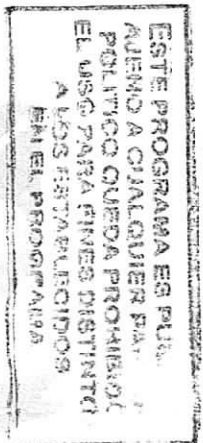 ESTE PROGRAMA ES PÚB
AJENO A CUALQUIER PA
POLITICO QUEDA PROHIBIDO
EL USO PARA FINES DISTINTO
A LOS ESTABLECIDOS
EN EL PROGRAMA